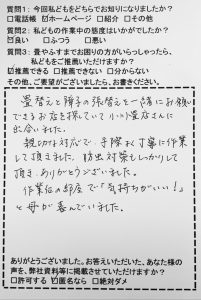 質問1：今回私どもをどちらでお知りになりましたか？
□電話帳 ☑ホームページ □紹介 □その他
質問2：私どもの作業中の態度はいかがでしたか？
☑良い □ふつう □悪い
質問3：畳やふすまでお困りの方がいらっしゃったら、
私どもをご推薦いただけますか？
☑推薦できる □推薦できない □分からない
その他、ご要望がございましたら、お書きください。
畳替えと障子の張替えを一緒にお願い
できるお店を探していて小川畳店さんに
出会いました。
親切な対応で、手際よく丁寧に作業
して頂きました。防虫対策もしっかりして
頂き、ありがとうございました。
作業後の部屋で「気持ちがいい！」
と母が喜んでいました。
ありがとうございました。お答えいただいた、あなた様の
声を、弊社資料等に掲載させていただけますか？
□許可する ☑匿名なら □絶対ダメ